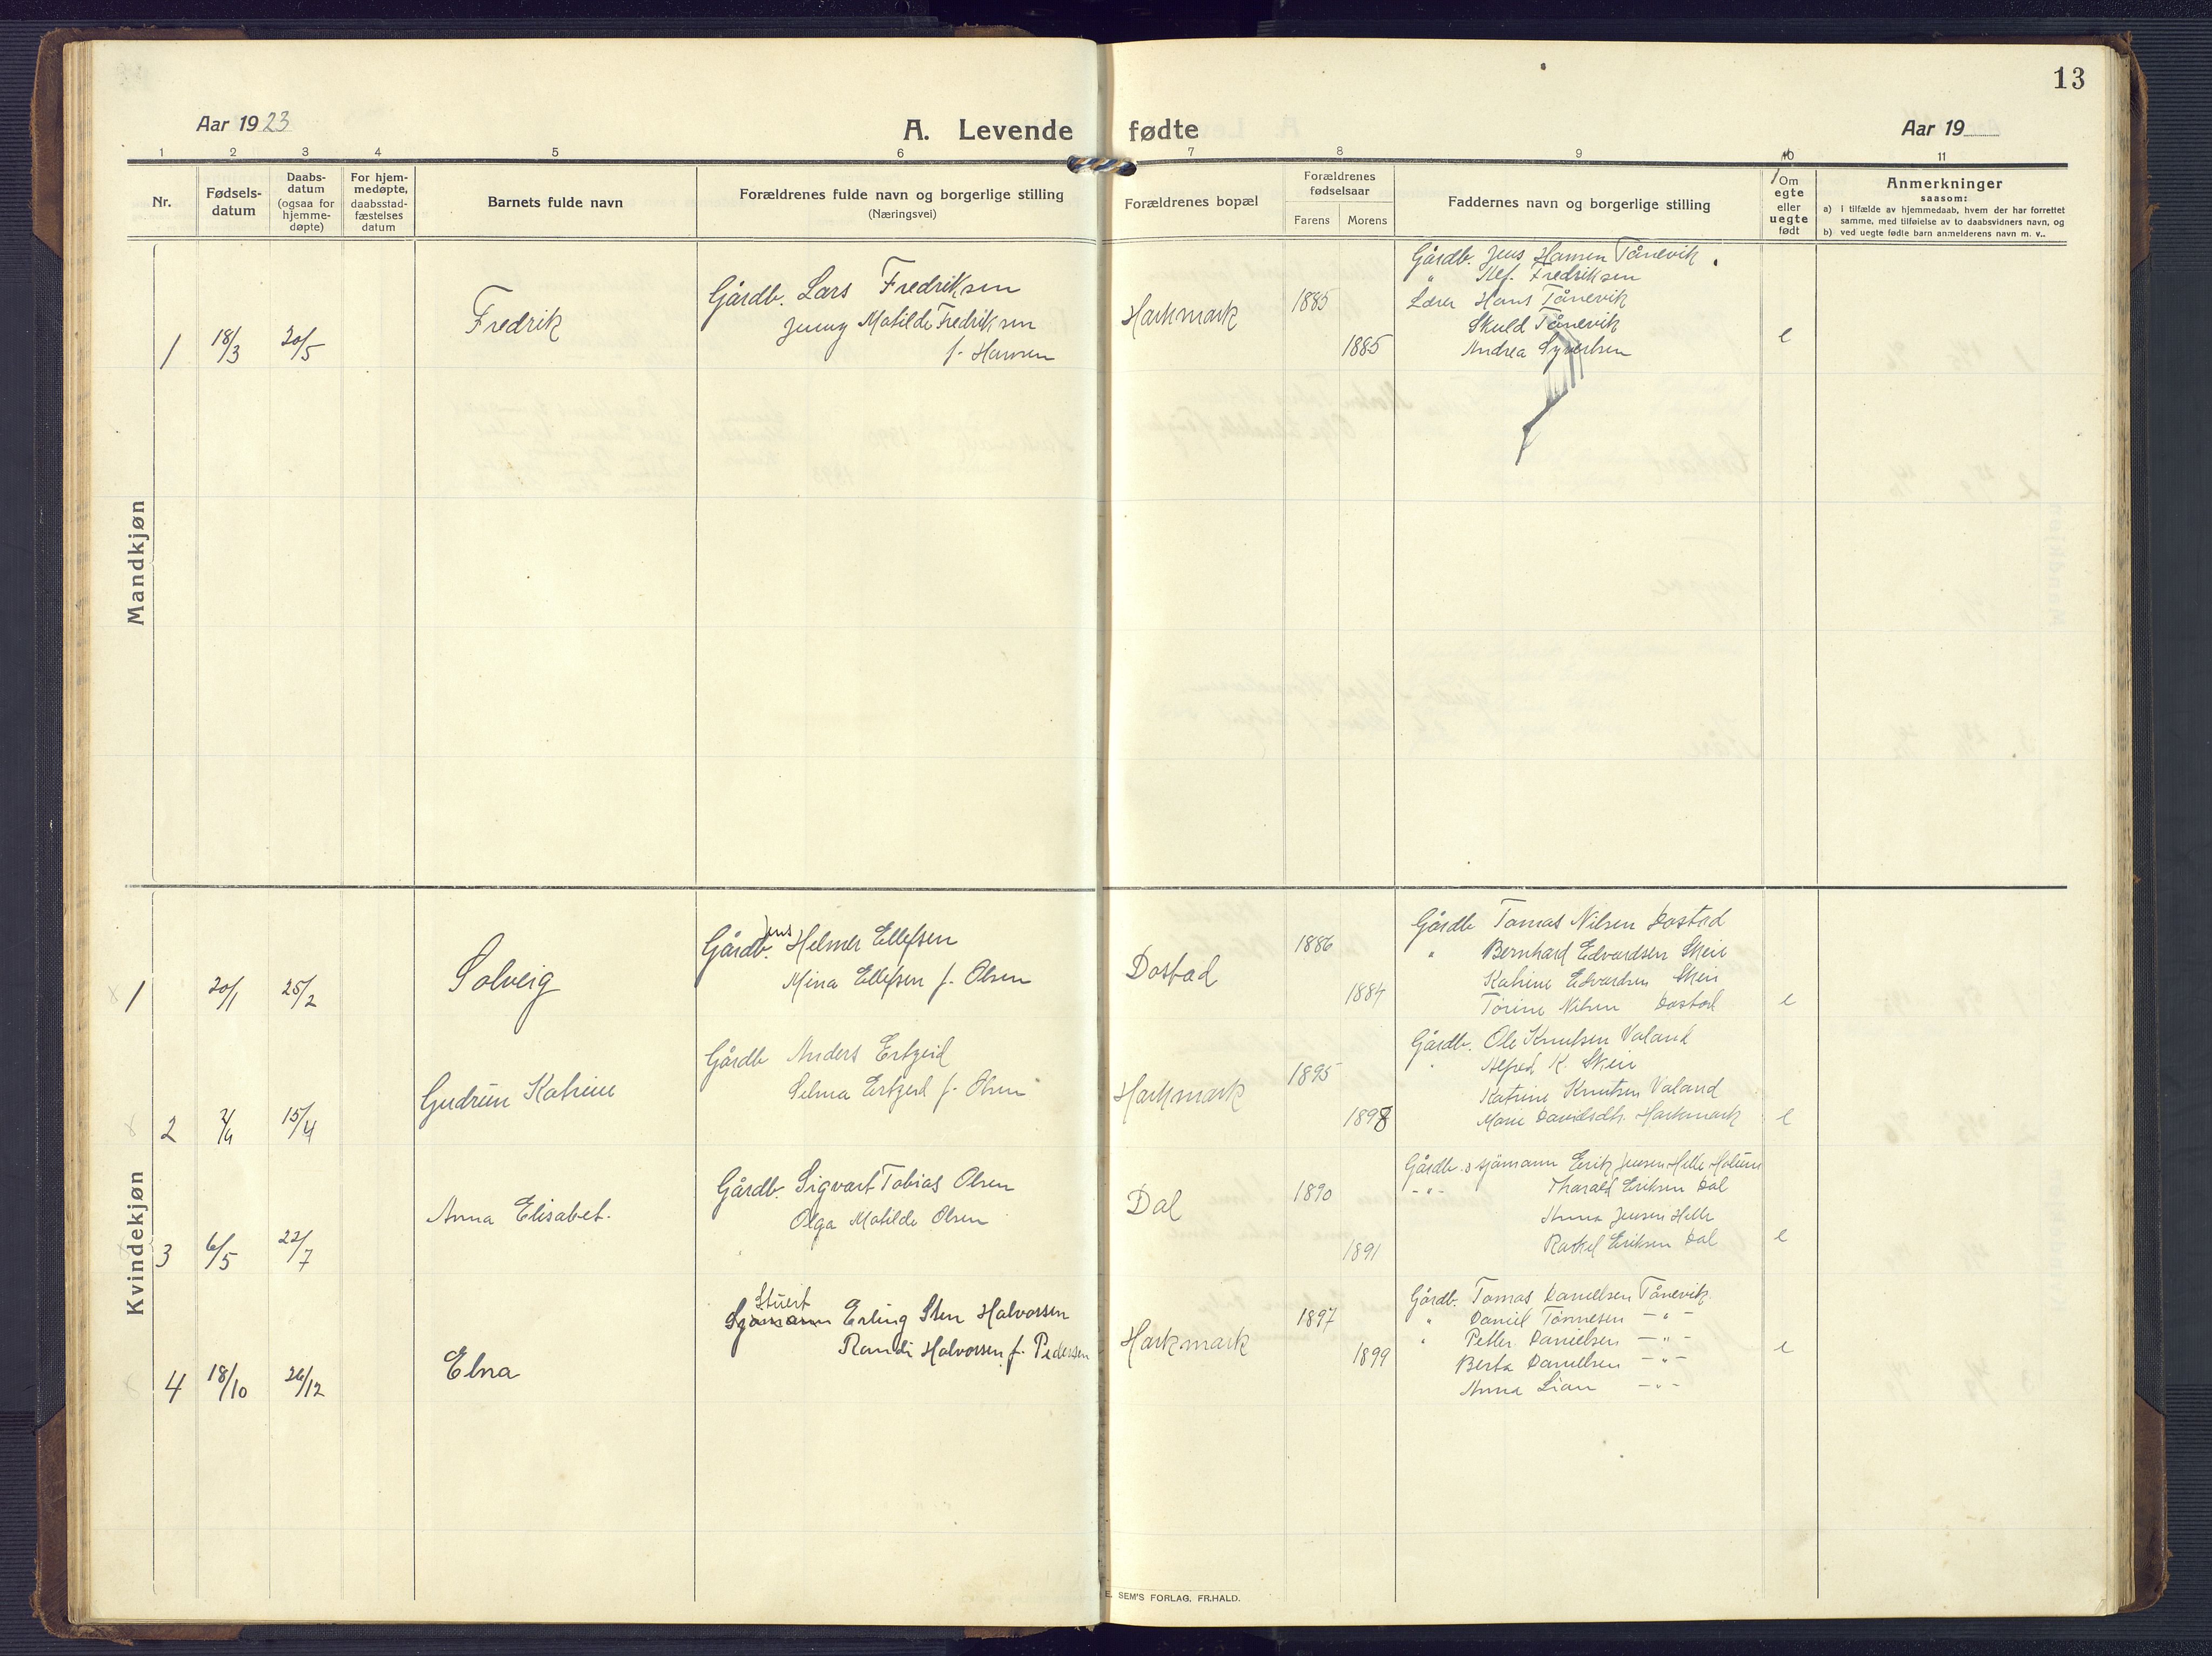 13
Aar 1923
A. Levende fødte
Aar 19
1 2 3 4 5 6 7 8 9 10 11
Nr.
Fødsels-
datum
Daabs-
datum
(ogsaa for
hjemme-
døpte)
For hjem-
medøpte,
daabsstad-
fæstelses
datum
Barnets fulde navn
Forældrenes fulde navn og borgerlige stilling
(Næringsvei)
Forældrenes bopæl
Forældrenes
fødselsaar
Farens Morens
Faddernes navn og borgerlige stilling
Om
egte
eller
uegte
født
Anmerkninger
saasom:
a) i tilfælde av hjemmedaab, hvem der har forrettet
samme, med tilføielse av to daabsvidners navn, og
b) ved uegte fødte barn anmelderens navn m. v..
Mandkjøn
1 18/3 20/5
Fredrik
Gårdb. Lars Fredriksen
Jenny Matilde Fredriksen
f. Hansen
Harkmark
1885
1885
Gårdb. Jens Hansen Tånevik
" Alf. Fredriksen
Lærer Hans Tånevik
Skuld Tånevik
Andrea Syvertsen
e
Kvindekjøn
1 20/1 25/2
Solveig
Gårdb. Jens Helmer Ellefsen
Mina Ellefsen f. Olsen
Dostad
1886
1884
Gårdb Tomas Nilsen Dostad
" Bernhard Edvardsen Skeie
Katrine Edvardsen Skeie
Torine Nilsen Dostad
e
2 2/4 15/4
Gudrun Katrine
Gårdb Anders Ertzeid
Selma Ertzeid f. Olsen
Harkmark
1895
1898
Gårdb. Ole Knutsen Valand
" Alfred K. Skeie
Katrine Knutsen Valand
Marie Davidsdtr. Harkmark
e
3 6/5 22/7
Anna Elisabet.
Gårdb. Sigvart Tobias Olsen
Olga Matilde Olsen
Dal
1890
1891
Gårdb. o sjømann Erik Jensen Hille Holum
- " - Tharald Eriksen Dal
Anna Jensen Hille
Rakel Eriksen Dal
e
4 18/10 26/12
Elna
Stuert
Sjømann Erling Sten Halvorsen
Randi Halvorsen f. Pedersen
Harkmark
1897
1899
Gårdb. Tomas Danielsen Tånevik
" Daniel Tønnesen - " -
" Petter Danielsen - " -
Berta Danielsen - " -
Anna Lian - " -
e
E. SEM'S FORLAG. FR.HALD.